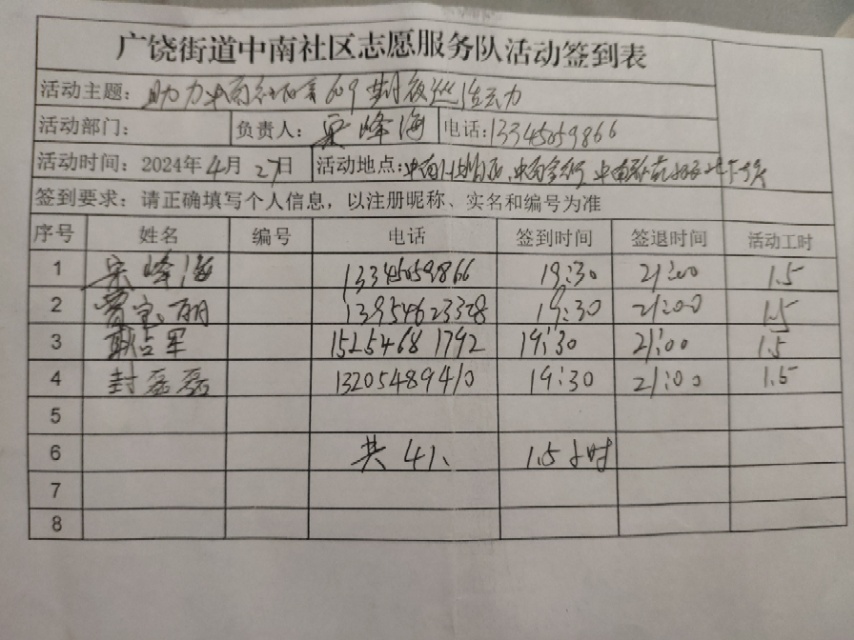 广饶街道中南社区志愿服务队活动签到表
活动主题: 助力中南社区
活动部门: 负责人: 宋峰海 电话:13345059866
活动时间: 2024年4月27日 活动地点:
签到要求: 请正确填写个人信息，以注册昵称、实名和编号为准
序号 姓名 编号 电话 签到时间 签退时间 活动工时
1 宋峰海 13345059866 19:30 21:00 1.5
2 曹宝丽 13954623328 19:30 21:00 1.5
3 耿占军 15254681792 19:30 21:00 1.5
4 封磊磊 13205489410 19:30 21:00 1.5
5
6 共4人、 1.5小时
7
8